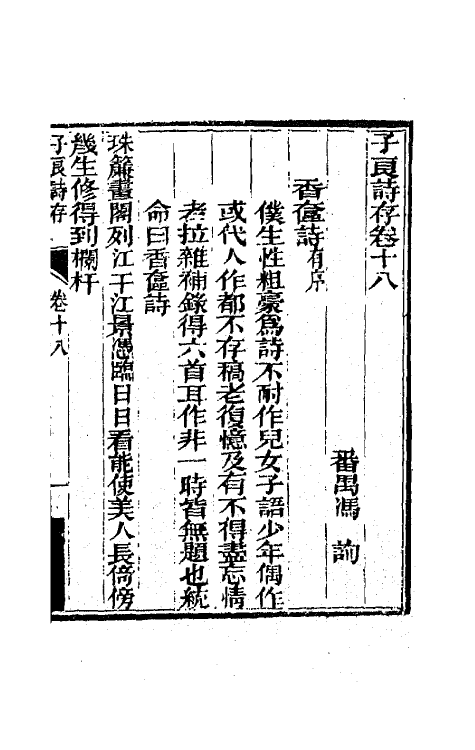 子良詩存卷十八
番禺馮 詢
香奩詩有序
僕生性粗豪爲詩不耐作兒女子語少年偶作
或代人作都不存稿老復憶及有不得盡忘情
者拉雜補錄得六首耳作非一時皆無題也統
命曰香奩詩
珠簾畫閣列江干江景憑臨日日看能使美人長倚傍
幾生修得到欄杆
子良詩存 卷十八